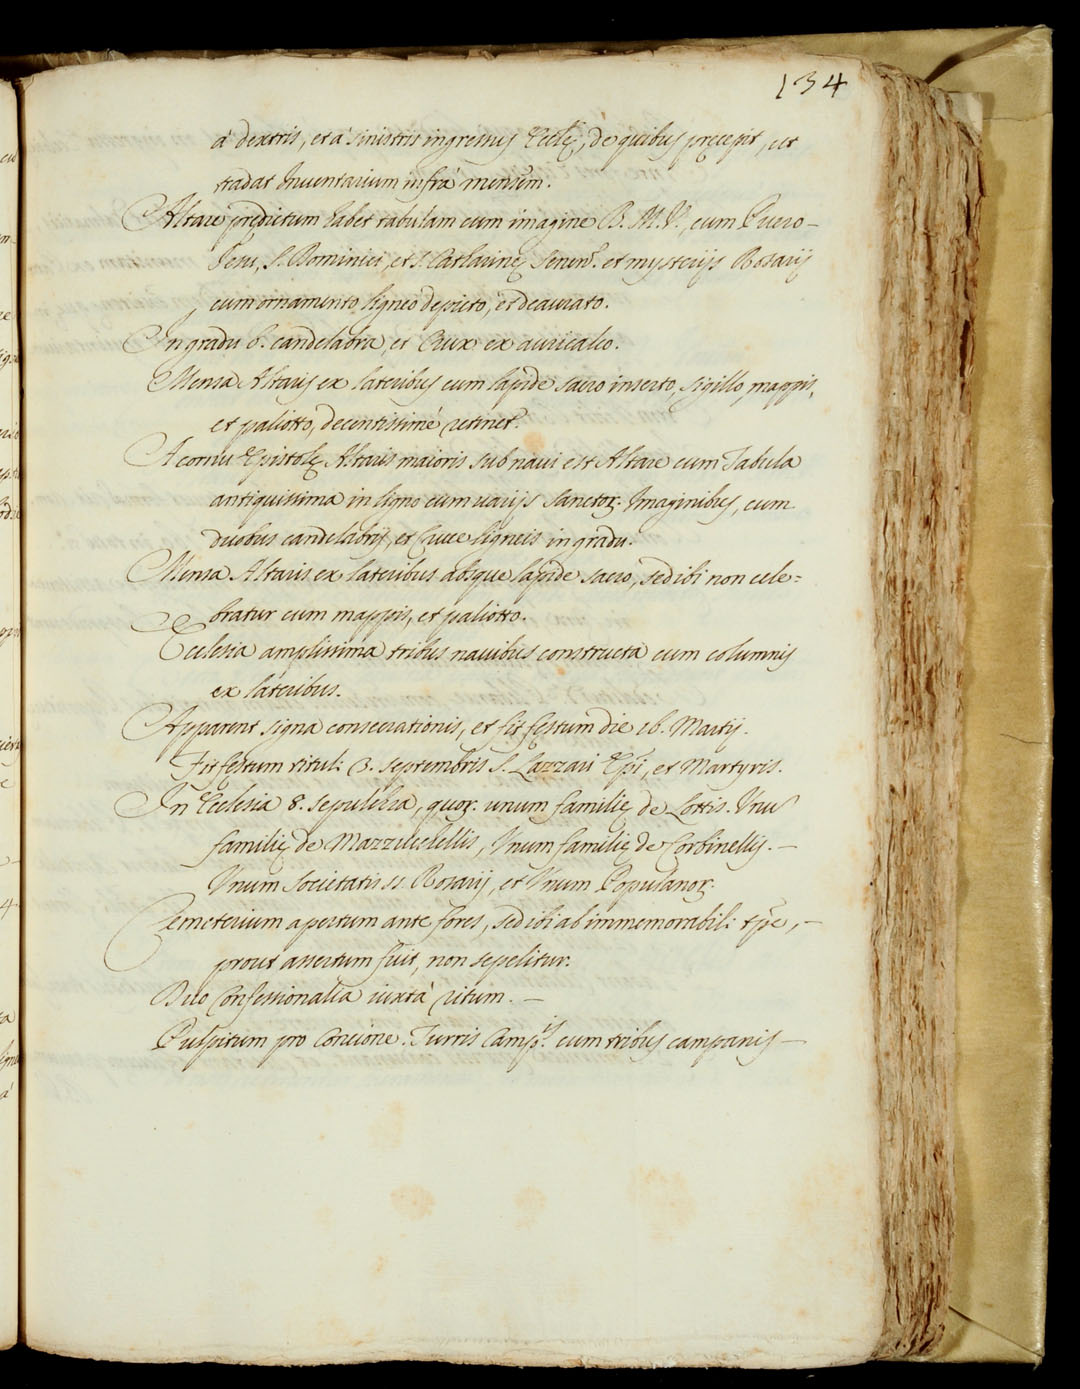 134
à dextris, et à sinistris ingressus Eccłę, de quibus pręcepit, ut
tradat Inuentarium infrà mensem.
Altare prędictum habet tabulam cum imagine B. M. V., cum Puero
Jesu, S. Dominici, et S. Catharinę Senen. et mysterijs Rosarij
cum ornamento ligneo depicto, et deaurato.
In gradu 6. candelabra, et Crux ex auricalco.
Mensa Altaris ex lateribus cum lapide sacro inserto, sigillo, mappis,
et paliotto, decentissimè retinet.
A cornu Epistolę Altaris maioris sub naui est Altare cum Tabula
antiquissima in ligno cum uarijs Sanctor. Imaginibus, cum
duobus candelabris, et Cruce ligneis in gradu.
Mensa Altaris ex lateribus absque lapide sacro, sed ibi non cele=
bratur cum mappis, et paliotto.
Ecclesia amplissima tribus nauibus constructa cum columnis
ex lateribus.
Apparent signa consecrationis, et fit festum die 16. Martij.
Fit festum tituli 3. Septembris S. Lazzari Epi, et Martyris.
In Ecclesia 8. sepulchra, quor. unum familię de Lottis. Vnu
familię de Mazzilchellis, Vnum familię de Corbinellis. —
Vnum Societatis SS. Rosarij, et Vnum Populanor.
Cemeterium apertum ante fores, sed ibi ab immemorabili tpre, —
prout assertum fuit, non sepelitur.
Duo Confessionalia iuxtà ritum. —
Pulpitum pro Concione. Turris Campis. cum tribus campanis —